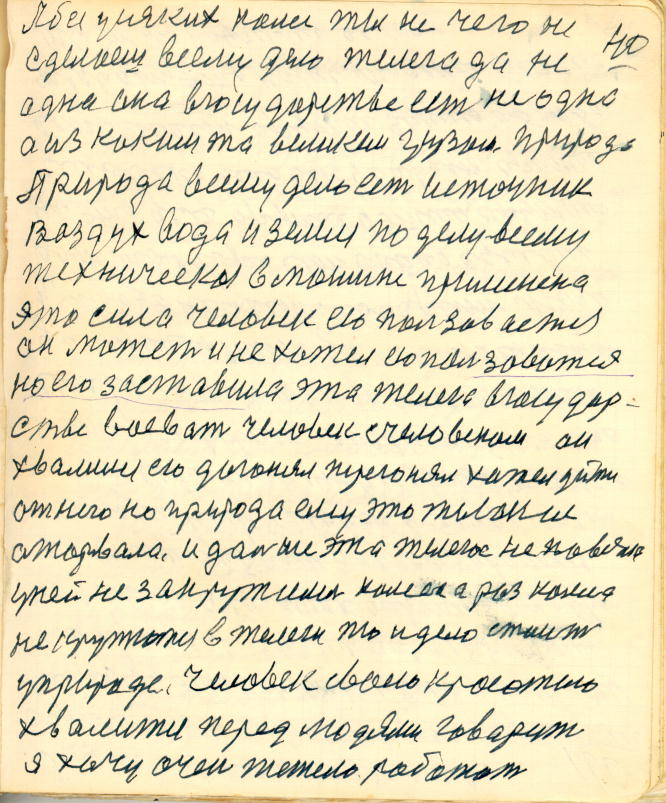 я без уняких колес ты не чего не 40
сделоеш всему дело телега да не
одна она вгосударстве ест не одна
а из какимта великим грузом природа
Природа всему дело ест источник
воздух вода и земля по делу всему
техническоя вмашине применена
это сила человек ею ползовается
он может и не хотел ею ползоватся
но его заставила эта телега вгосудар-
стве воеват человек счеловеком он
хвалился его догонял перегонял хател уйти
от него но природа ему это
оторвала. и дальше эта телега не
у ней не закружили колеса раз колеса
не кружатся в телеги то и дело стоит
уприроде. Человек своею красотою
хвалится перед людями говарит
я хочу очен тежело работат